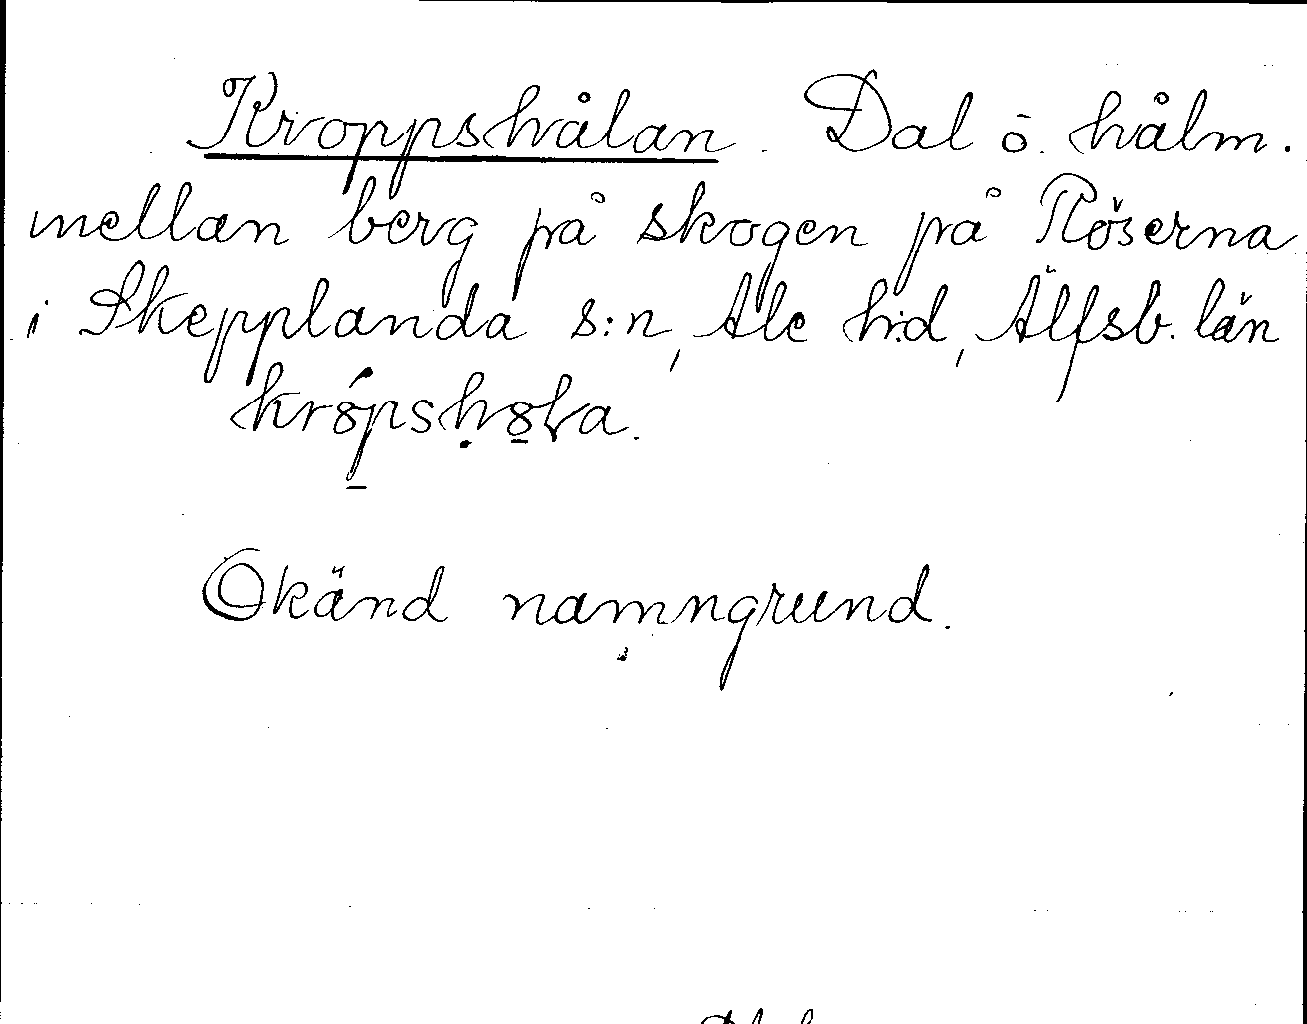 Kroppshålan. Dal o. hålm.
mellan berg på skogen på Röserna
i Skepplanda s:n, Ale h:d, Älfsb. län
Okänd namngrund.